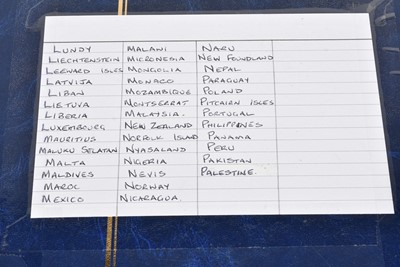 LUNDY
LIECHTENSTEIN
LEEWARD ISLES
LATVIJA
LIBAN
LIETUVA
LIBERIA
LUXEMBOURG
MAURITIUS
MALUKU SELATAN
MALTA
MALDIVES
MAROC
MEXICO
MALAWI
MICRONESIA
MONGOLIA
MONACO
MOZAMBIQUE
MONTSERRAT
MALAYSIA.
NEW ZEALAND
NORFOLK ISLAND
NYASALAND
NIGERIA
NEVIS
NORWAY
NICARAGUA
NARU
NEW FOUNDLAND
NEPAL
PARAGUAY
POLAND
PITCAIRN ISLES
PORTUGAL
PHILIPPENES
PANAMA
PERU
PAKISTAN
PALESTINE.